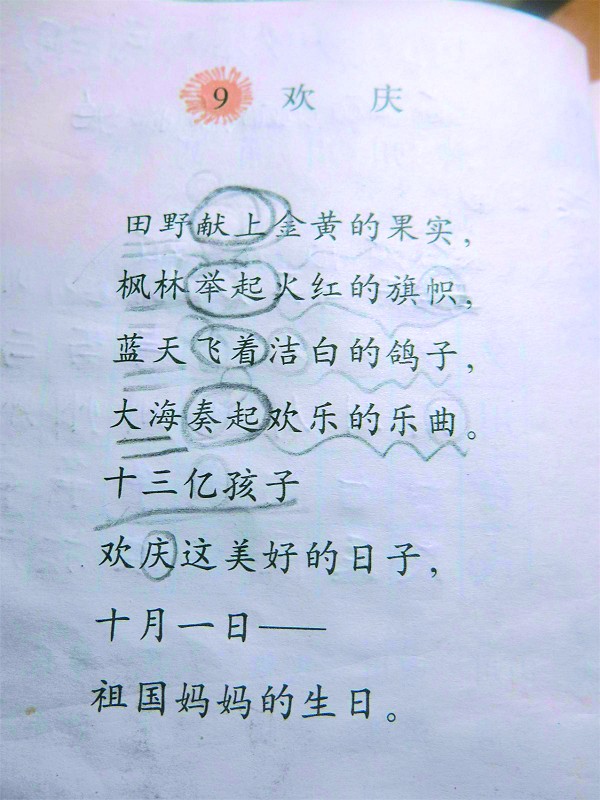 9 欢 庆
田野献上金黄的果实，
枫林举起火红的旗帜，
蓝天飞着洁白的鸽子，
大海奏起欢乐的乐曲。
十三亿孩子
欢庆这美好的日子，
十月一日——
祖国妈妈的生日。